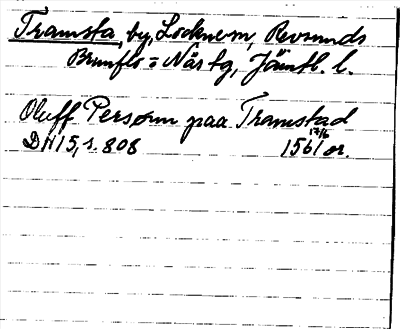 Tramsta, by, Locknem, Revsunds
Brunflo o Näs tg, Jämtl. l.
Oluff Persønn paa Tramstad
DN 15, s. 808 17/6 1561 or.